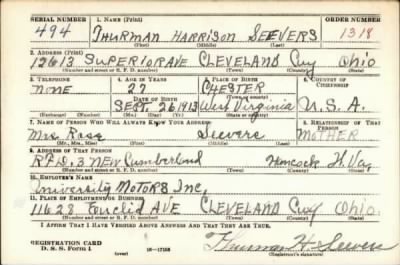 SERIAL NUMBER 1. NAME (Print) ORDER NUMBER
494 THURMAN HARRISON SEEVERS 1318
(First) (Middle) (Last)
2. ADDRESS (Print)
12613 SUPERIOR AVE CLEVELAND Cuy Ohio
(Number and street or R. F. D. number) (Town) (County) (State)
3. TELEPHONE 4. AGE IN YEARS 5. PLACE OF BIRTH 6. COUNTRY OF CITIZENSHIP
NONE 27 CHESTER
(Town or county)
DATE OF BIRTH
SEPT. 26 1913 West Virginia U.S.A.
(Exchange) (Number) (Mo.) (Day) (Yr.) (State or country)
7. NAME OF PERSON WHO WILL ALWAYS KNOW YOUR ADDRESS 8. RELATIONSHIP OF THAT PERSON
Mrs. Rosa Seevers MOTHER
(Mr., Mrs., Miss) (First) (Middle) (Last)
9. ADDRESS OF THAT PERSON
R.F.D. 3 NEW Cumberland Hancock W. Va.
(Number and street or R. F. D. number) (Town) (County) (State)
10. EMPLOYER'S NAME
University MOTORS Inc,
11. PLACE OF EMPLOYMENT OR BUSINESS
11628 Euclid AVE CLEVELAND Cuy Ohio.
(Number and street or R. F. D. number) (Town) (County) (State)
I AFFIRM THAT I HAVE VERIFIED ABOVE ANSWERS AND THAT THEY ARE TRUE.
REGISTRATION CARD
D. S. S. Form 1 (over) 16—17105 Thurman H. Seevers
(Registrant's signature)